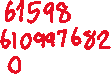 61598
610997682
0